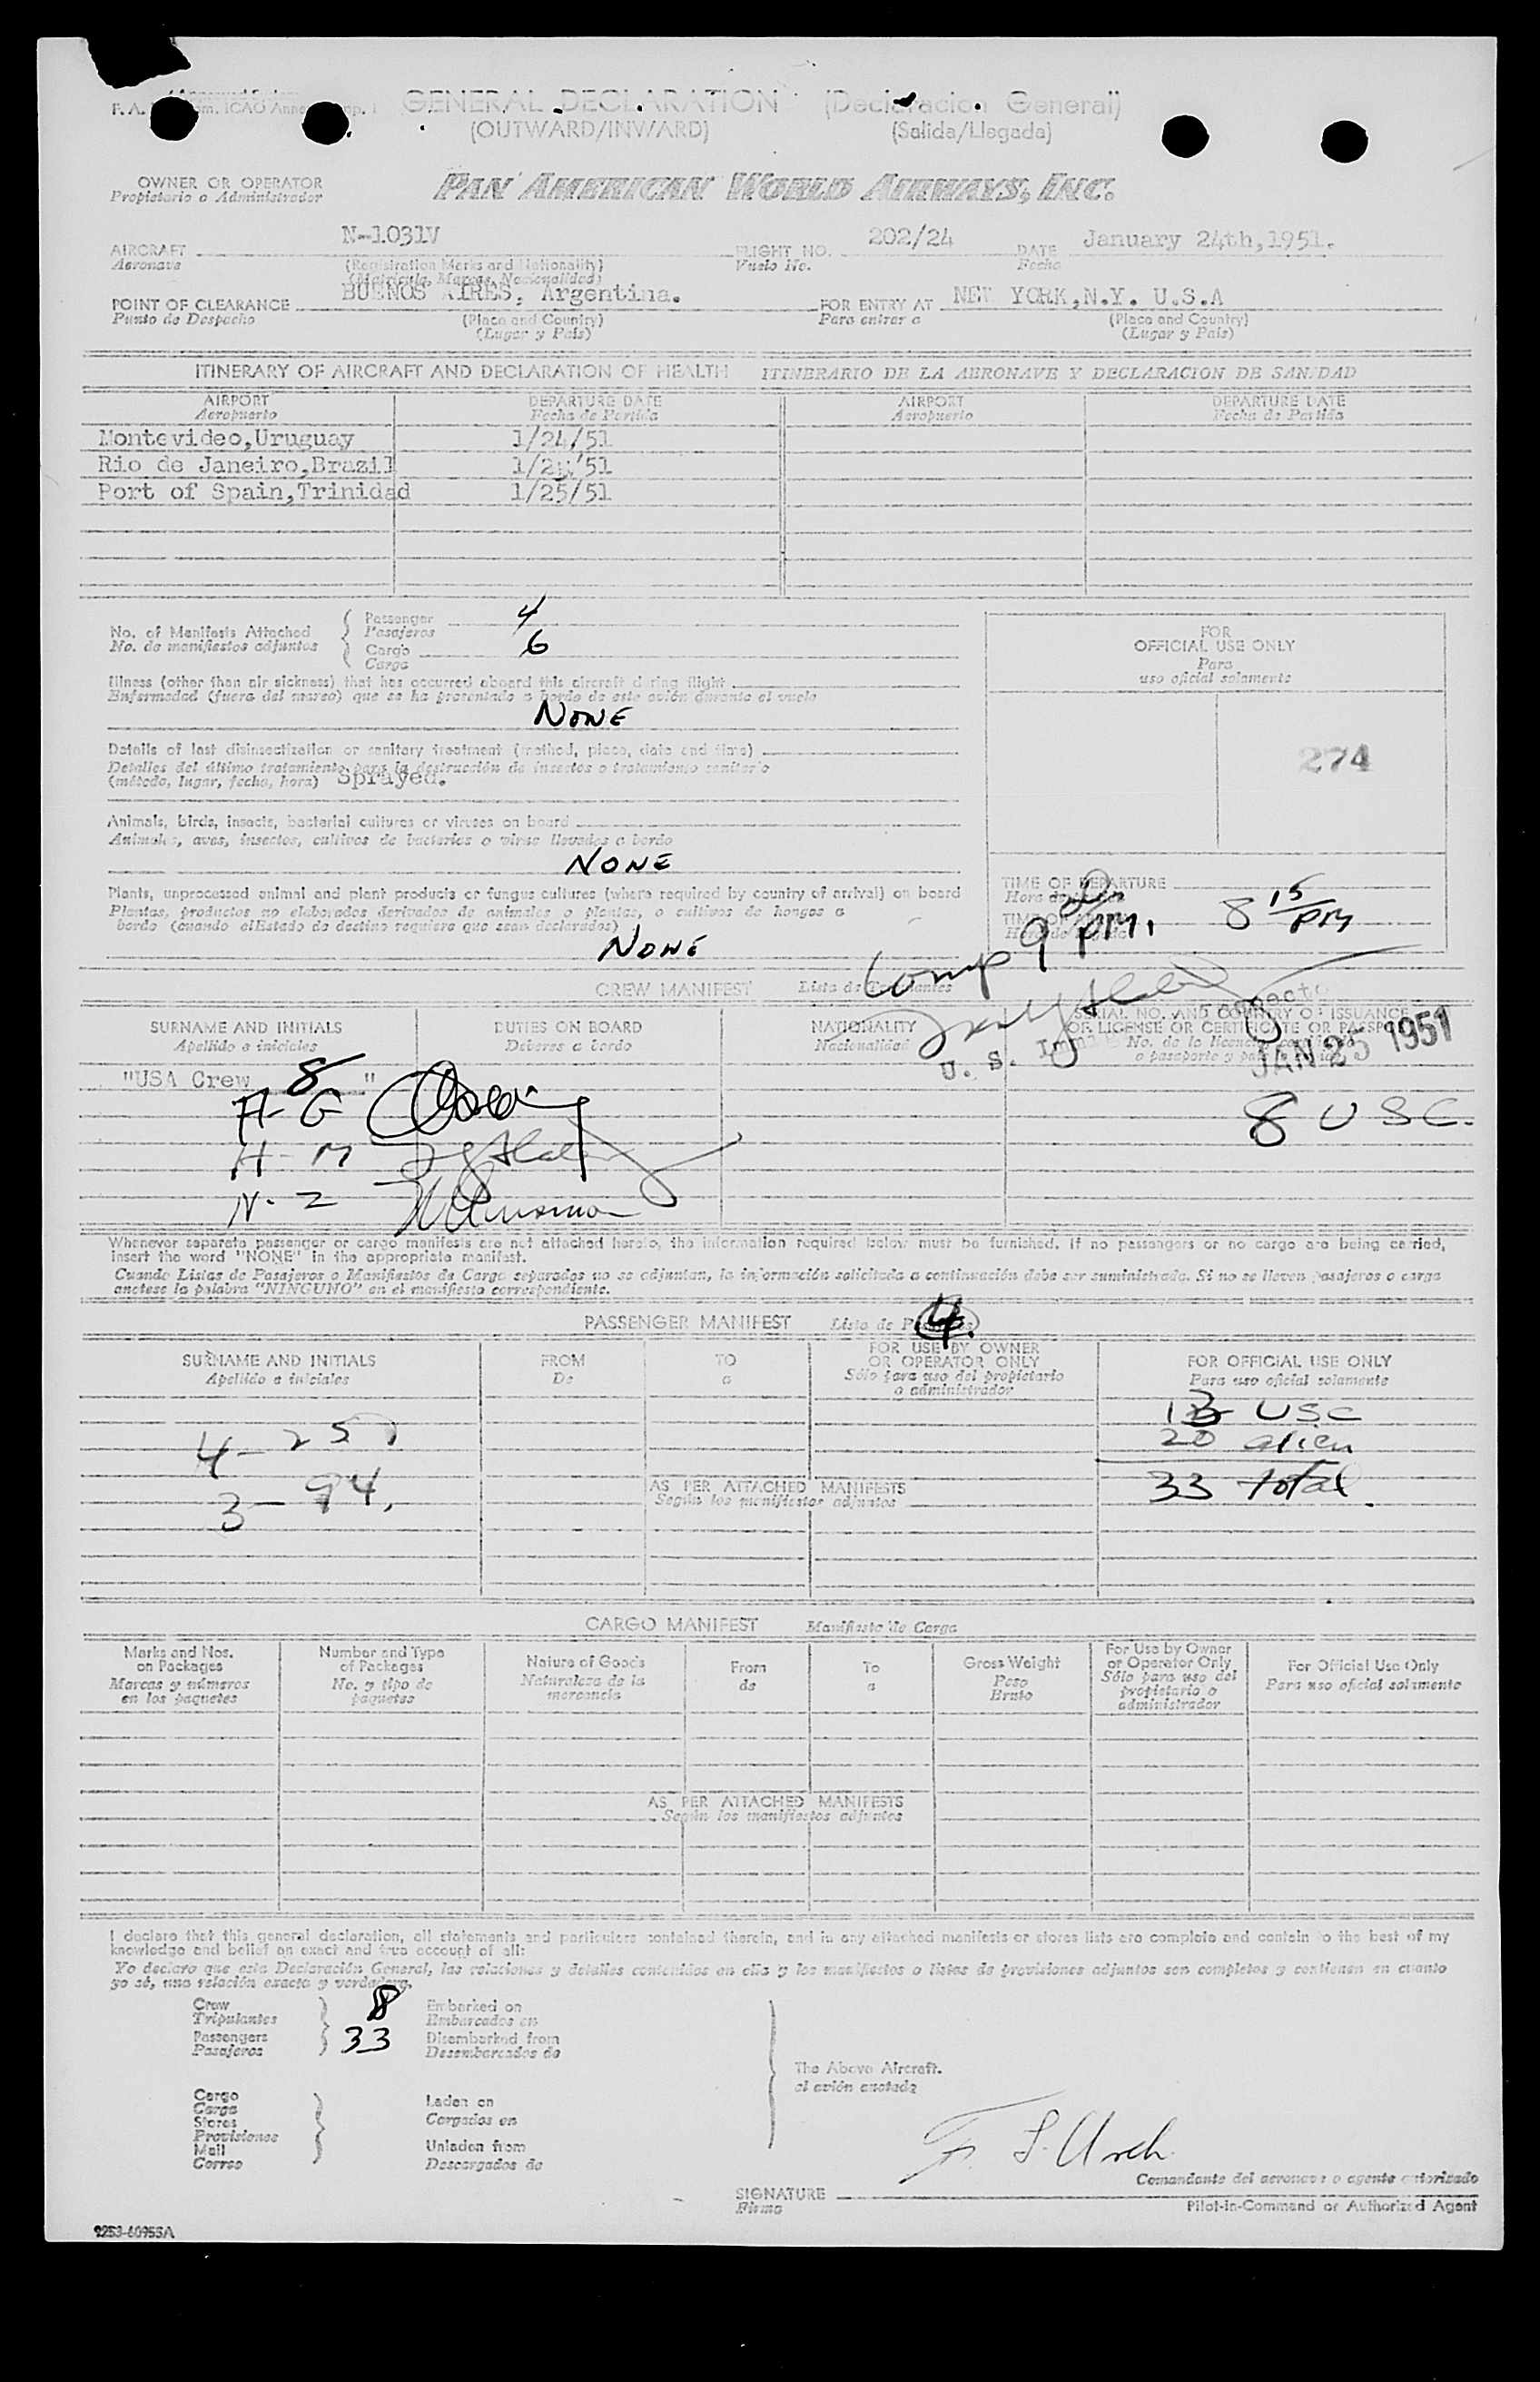 GENERAL DECLARATION (Declaracion General)
(OUTWARD/INWARD) (Salida/Llegada)
OWNER OR OPERATOR
Propietario o Administrador
PAN AMERICAN WORLD AIRWAYS, INC.
AIRCRAFT N-1031V FLIGHT NO. 202/24 DATE January 24th,1951.
Aeronave (Registration Marks and Nationality) Vuelo No. Fecha
(Matricula, Marcas, Nacionalidad)
POINT OF CLEARANCE BUENOS AIRES, Argentina. FOR ENTRY AT NEW YORK,N.Y. U.S.A
Punto de Despacho (Place and Country) Para entrar a (Place and Country)
(Lugar y País) (Lugar y País)
ITINERARY OF AIRCRAFT AND DECLARATION OF HEALTH ITINERARIO DE LA AERONAVE Y DECLARACION DE SANIDAD
AIRPORT DEPARTURE DATE AIRPORT DEPARTURE DATE
Aeropuerto Fecha de Partida Aeropuerto Fecha de Partida
Montevideo,Uruguay 1/24/51
Rio de Janeiro,Brazil 1/24/51
Port of Spain,Trinidad 1/25/51
No. of Manifests Attached
No. de manifiestos adjuntos
Passenger 4
Pasajeros
Cargo 6
Carga
FOR
OFFICIAL USE ONLY
Para
uso oficial solamente
Illness (other than air sickness) that has occurred aboard this aircraft during flight
Enfermedad (fuera del mareo) que se ha presentado a bordo de este avión durante el vuelo
NONE
Details of last disinsectization or sanitary treatment (method, place, date and time)
Detalles del último tratamiento para la destrucción de insectos o tratamiento sanitario
(método, lugar, fecha, hora) Sprayed.
274
Animals, birds, insects, bacterial cultures or viruses on board
Animales, aves, insectos, cultivos de bacterias o virus llevados a bordo
NONE
Plants, unprocessed animal and plant products or fungus cultures (where required by country of arrival) on board
Plantas, productos no elaborados derivados de animales o plantas, o cultivos de hongos a
bordo (cuando el Estado de destino requiera que sean declarados)
NONE
TIME OF DEPARTURE
8 15 PM
Comp 9 PM.
CREW MANIFEST Lista de Tripulantes
SURNAME AND INITIALS DUTIES ON BOARD NATIONALITY SERIAL NO. AND COUNTRY OF ISSUANCE
OF LICENSE OR CERTIFICATE OR PASSPORT
Apellido e iniciales Deberes a bordo Nacionalidad
U. S.
JAN 25 1951
"USA Crew 8 "
A-G
8 USC.
H-M
N-Z
Whenever separate passenger or cargo manifests are not attached hereto, the information required below must be furnished. If no passengers or no cargo are being carried,
insert the word "NONE" in the appropriate manifest.
Cuando Listas de Pasajeros o Manifiestos de Carga separados no se adjuntan, la información solicitada a continuación debe ser suministrada. Si no se lleven pasajeros o carga
anótese la palabra "NINGUNO" en el manifiesto correspondiente.
PASSENGER MANIFEST Lista de Pasajeros 4.
SURNAME AND INITIALS FROM TO FOR USE BY OWNER
OR OPERATOR ONLY FOR OFFICIAL USE ONLY
Apellido e iniciales De a Sólo para uso del propietario
o administrador Para uso oficial solamente
13 USC
20 alien
33 total.
3 - 94,
AS PER ATTACHED MANIFESTS
Según los manifiestos adjuntos
CARGO MANIFEST Manifiesto de Carga
Marks and Nos.
on Packages
Marcas y números
en los paquetes
Number and Type
of Packages
No. y tipo de
paquetes
Nature of Goods
Naturaleza de la
mercancía
From
de
To
a
Gross Weight
Peso
Bruto
For Use by Owner
or Operator Only
Sólo para uso del
propietario o
administrador
For Official Use Only
Para uso oficial solamente
AS PER ATTACHED MANIFESTS
Según los manifiestos adjuntos
I declare that this general declaration, all statements and particulars contained therein, and in any attached manifests or stores lists are complete and contain to the best of my
knowledge and belief an exact and true account of all:
Yo declaro que esta Declaración General, las relaciones y detalles contenidos en ella y los manifiestos o listas de provisiones adjuntos son completos y contienen en cuanto
yo sé, una relación exacta y verdadera.
Crew 8 Embarked on
Tripulantes Embarcados en
Passengers 33 Disembarked from
Pasajeros Desembarcados de
The Above Aircraft.
el avión anotado
Cargo Laden on
Carga Cargados en
Stores
Provisiones
Mail Unladen from
Correo Descargados de
Comandante del aeronave o agente autorizado
SIGNATURE
Firma
Pilot-in-Command or Authorized Agent
9253-6095SA